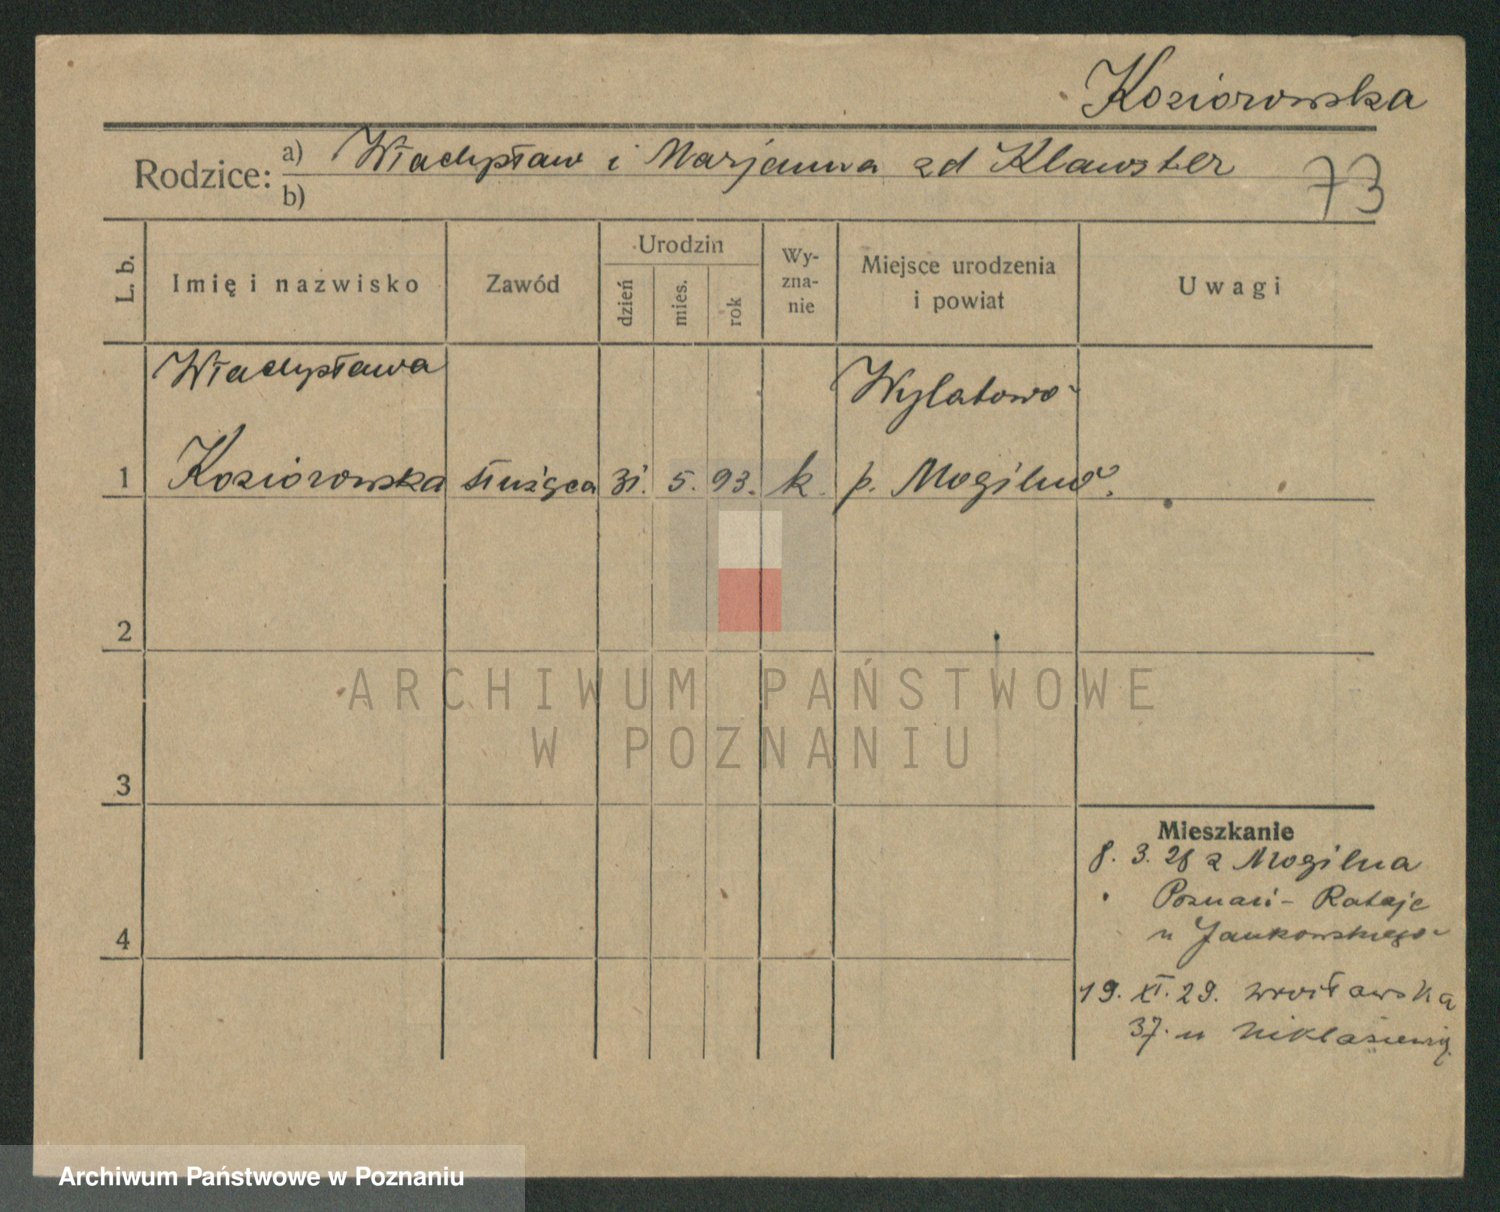 Koziorowska
Rodzice: a) Władysław i Marjanna zd Klawster
b)
73
L. b.
Imię i nazwisko
Zawód
Urodzin
dzień
mies.
rok
Wy-
zna-
nie
Miejsce urodzenia
i powiat
Uwagi
Władysława
Wylatowo
1 Koziorowska służąca 31. 5. 93. k. p. Mogilno.
2
ARCHIWUM PAŃSTWOWE
W POZNANIU
3
Mieszkanie
8. 3. 28 z Mogilna
Poznań - Rataje
4
u Jankowskiego
19. XI. 29. Wrocławska
37. u
Archiwum Państwowe w Poznaniu